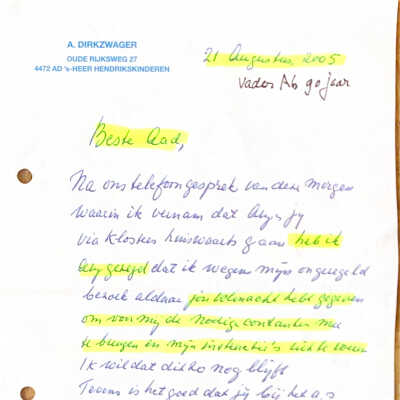 A. DIRKZWAGER
OUDE RIJKSWEG 27
4472 AD 's-HEER HENDRIKSKINDEREN
21 Augustus 2005
Vader Ab 90 jaar
Beste Aad,
Na ons telefoongesprek van deze morgen
waarin ik vernam dat jij
via Klosters huiswaarts gaan heb ik
gezegd dat ik wegens mijn ongeregeld
bezoek aldaar jou volmacht hebt gegeven
om voor mij de nodige contanten mee
te brengen en mijn instructie's uit te voeren
Ik wil dat dit zo nog blijft
Tevens is het goed dat jij bij het a.s